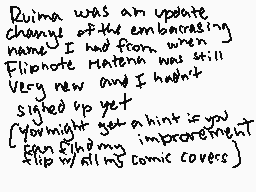 Ruima was an update
change of the embarrasing
name I had from when
Flipnote Hatena was still
very new and I hadn't
signed up yet
(You might get a hint if you
can find my improvement
flip w/ all my comic covers)